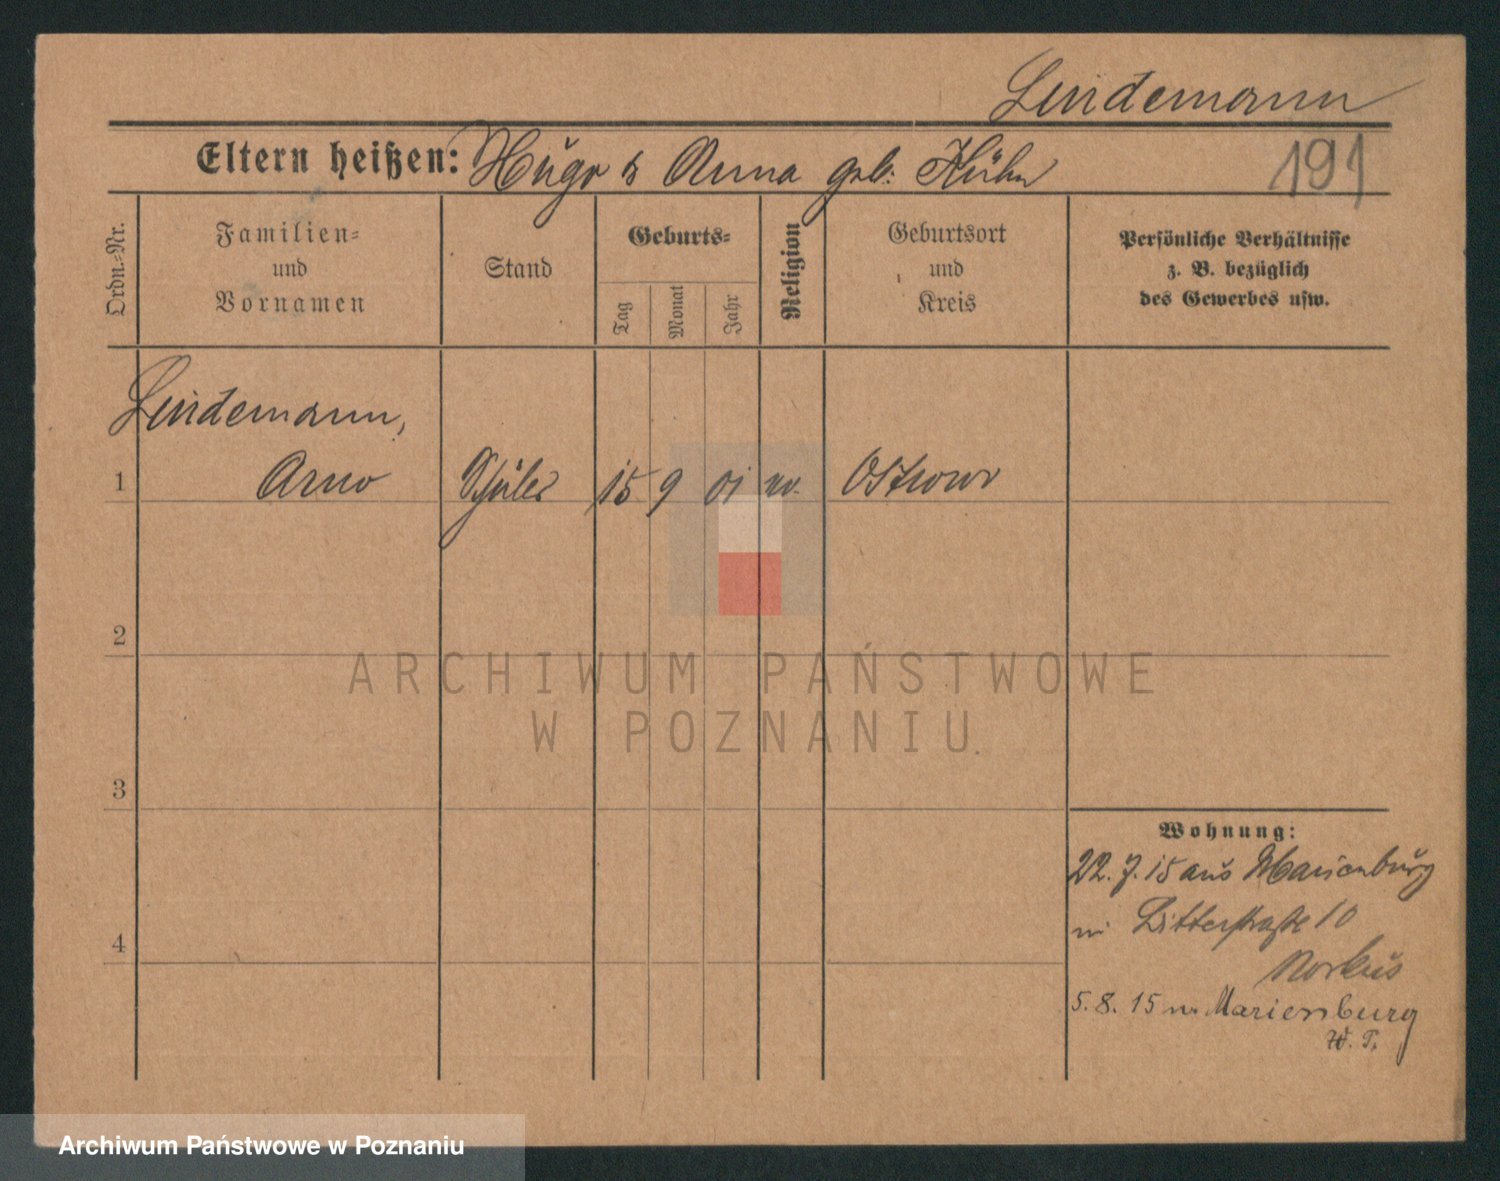 Lindemann
Eltern heißen: Hugo & Anna geb. Kühn
191
Ordn.-Nr.
Familien-
und
Vornamen
Stand
Geburts-
Tag
Monat
Jahr
Religion
Geburtsort
und
Kreis
Persönliche Verhältnisse
z. B. bezüglich
des Gewerbes usw.
Lindemann,
1 Arno Schüler 15 9 01 Ostrowo
2
3
4
Wohnung:
22. 7. 15 aus Marienburg
Ritterstraße 10
Norkus
5. 8. 15 n. Marienburg
W. P.
ARCHIWUM PAŃSTWOWE
W POZNANIU
Archiwum Państwowe w Poznaniu